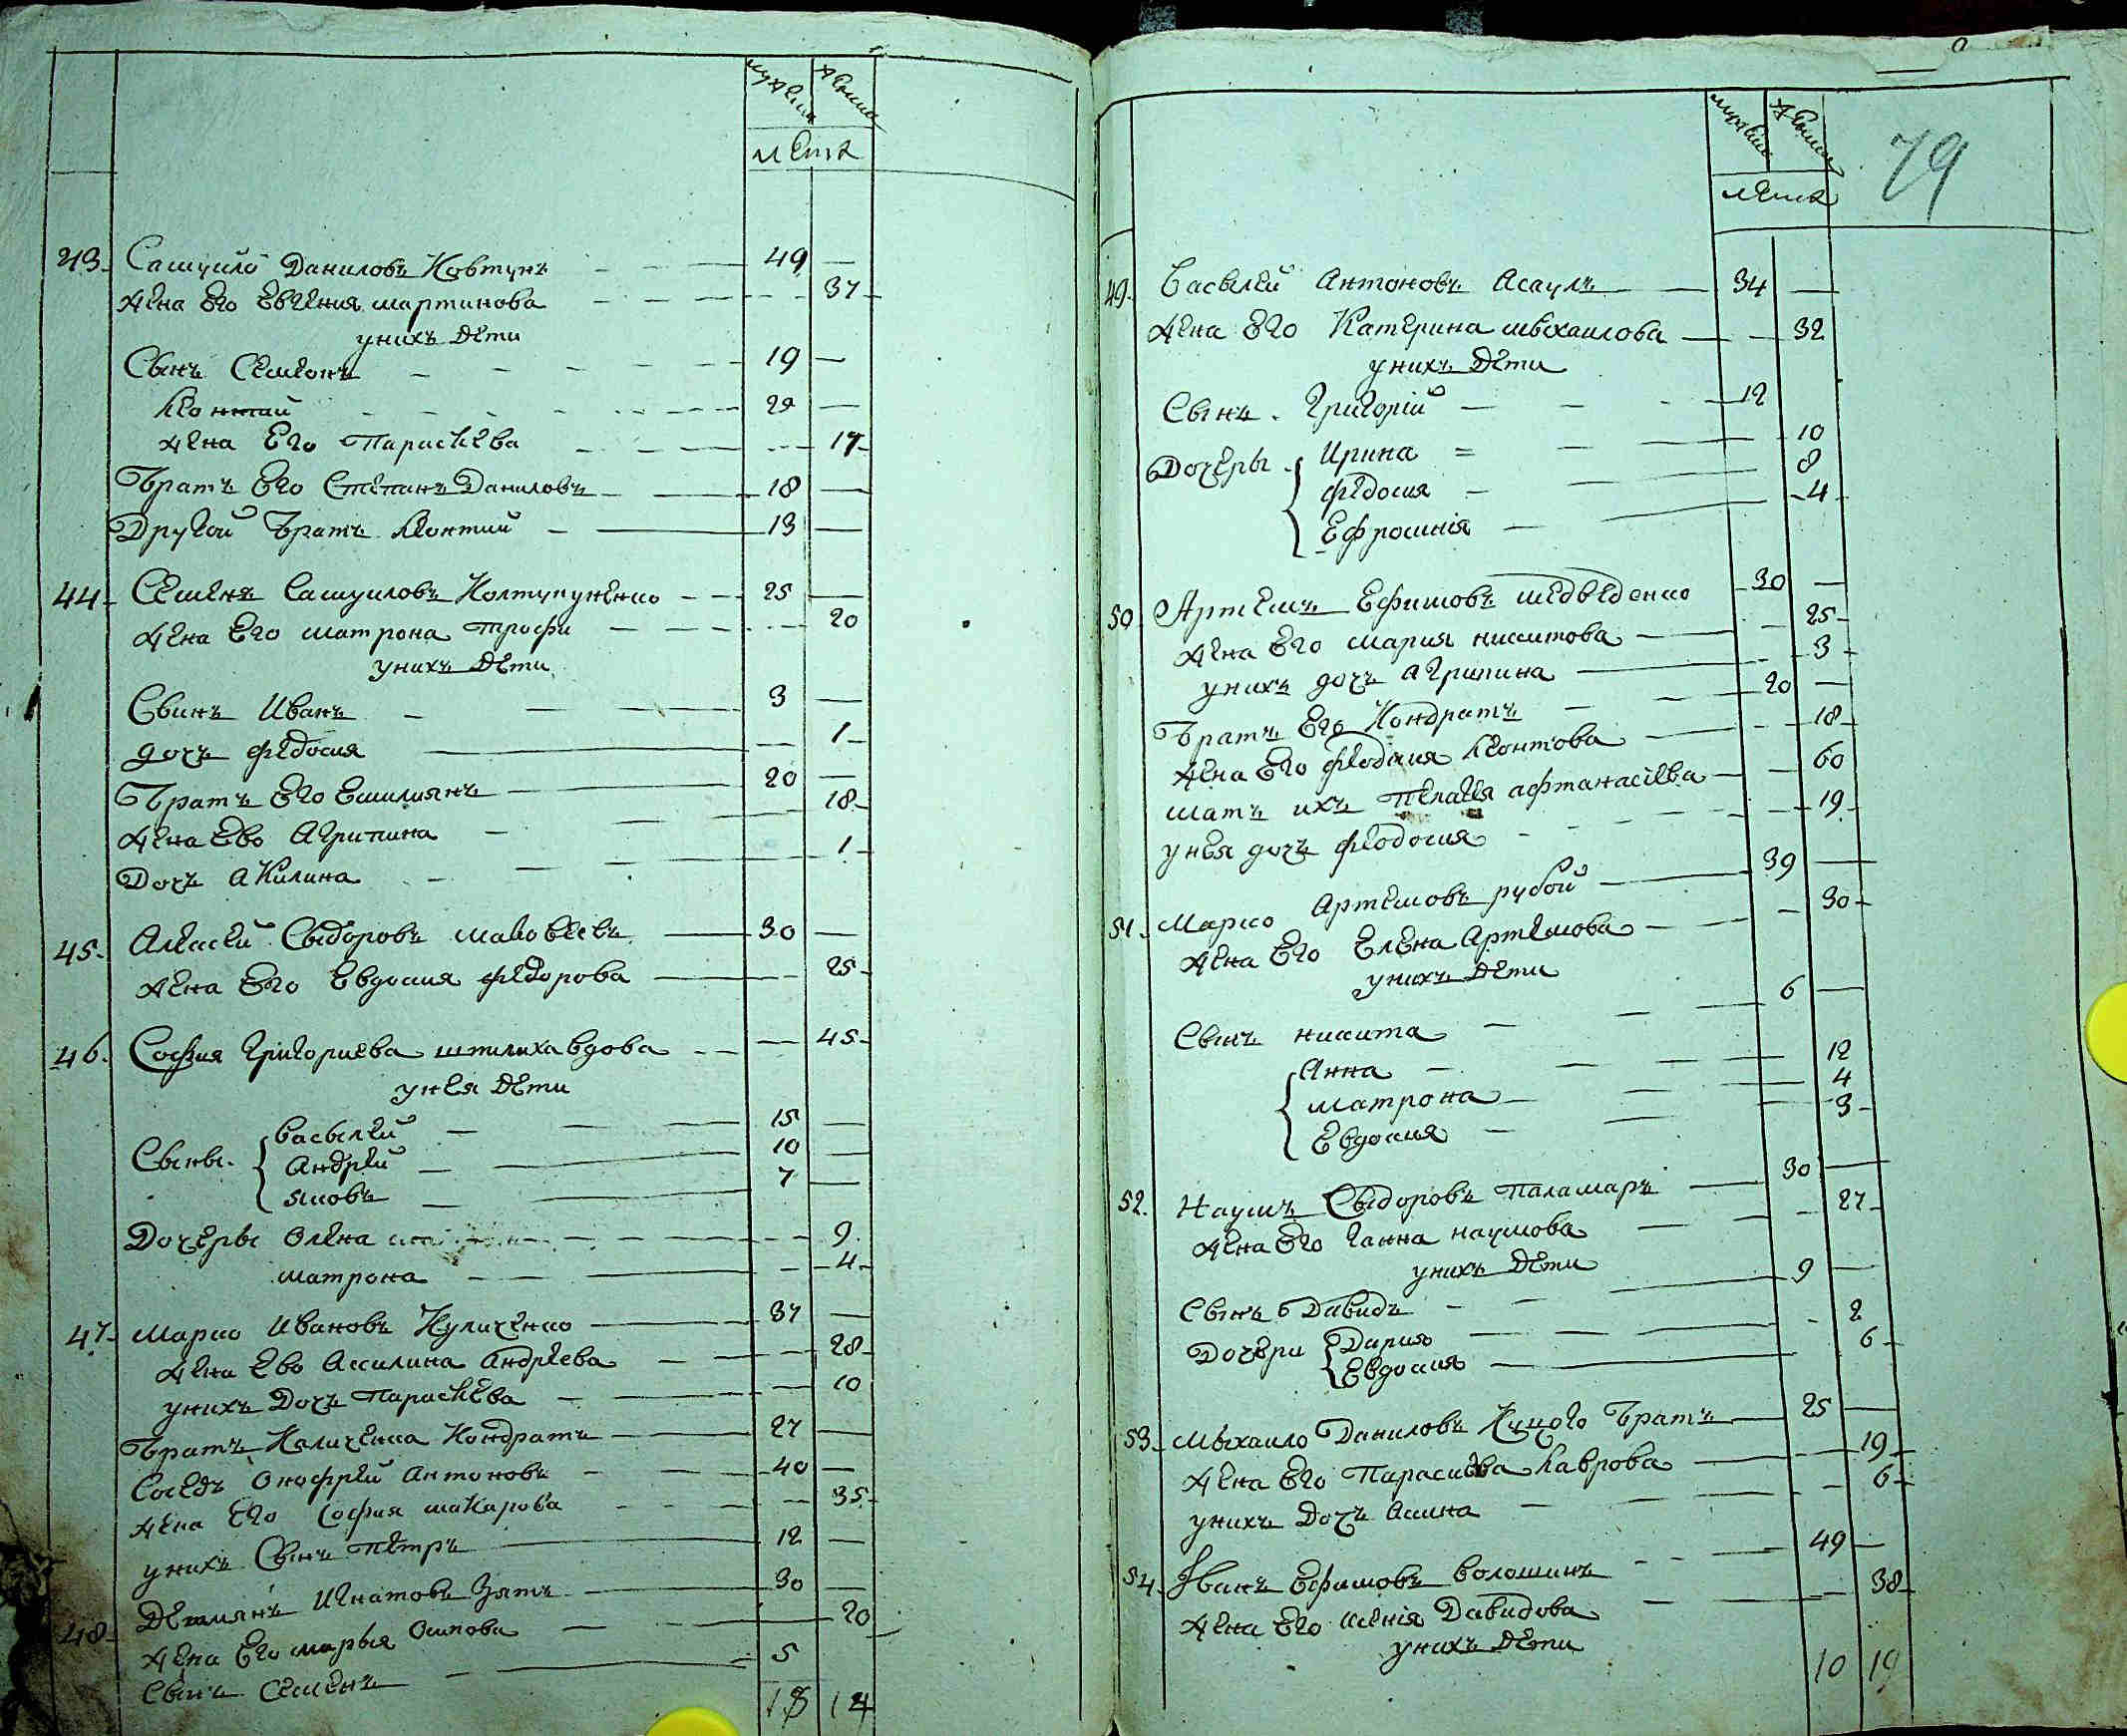 мужеска женска
лета
43. Самуйло Даниловъ Ковтунъ 49 —
жена его Евгения мартинова — 37
унихъ дети
Сынъ Семионъ 19 —
Леонтий 22 —
жена Его Параскева — 17
Братъ Его Степанъ Даниловъ 18 —
Другой Братъ Леонтий 13 —
44. Семенъ Самуиловъ 25 —
жена Его матрона трофи — 20
унихъ дети
Сынъ Иванъ 3 —
дочь федосия — 1
Братъ Его Емилиянъ 20 —
жена Ево Агрипина — 18
Дочь Акилина — 1
45. Алексей Сыдоровъ маковеевъ 30 —
жена Его Евдокия федорова — 25
46. София Григориева шпилиха вдова — 45
унея дети
Сыны Васылий 15 —
Андрей 10 —
яковъ 7 —
Дочеры Олена — 9
матрона — 4
47. Марко Ивановъ Куличенко 37 —
жена Ево Акилина Андреева — 28
унихъ Дочь Параскева — 10
Братъ Каличенка Кондратъ 27 —
Соседъ Онофрей Антоновъ 40 —
жена Его София макарова — 35
унихъ Сынъ Петръ 12 —
48. Демянъ Игнатовъ Зять 30 —
жена Его марья Осипова — 20
Сынъ Семенъ 5
18 14
79
мужеска женска
лета
49. Васылей Антоновъ Асаулъ 34 —
жена Его Катерина мыхаилова — 32
унихъ дети
Сынъ Григорий 12
Дочеры Ирина 10
федосия 8
Ефросиния 4
50. Артемъ Ефимовъ медведенко 30 —
жена Его мария никитова — 25
унихъ дочь Агрипина — 3
Братъ Его Кондратъ 20 —
жена Его феодосия Леонтова — 18
мать ихъ Пелагея афтанасиева — 60
унея дочь феодосия — 19
51. Марко Артемовъ рубой 39 —
жена Его Елена Артемова — 30
унихъ дети
Сынъ никита 6 —
Анна 12
матрона 4
Евдокия 3
52. Наумъ Сыдоровъ Паламаръ 30 —
жена Его Ганна наумова — 27
унихъ дети
Сынъ Давидъ 9 —
Дочери Дария 2
Евдокия 6
53. Мыхаило Даниловъ Куцого Братъ 25 —
жена Его Параскева Лаврова — 19
унихъ Дочь Акина — 6
54. Иванъ Ефимовъ Волошинъ 49 —
жена Его ксения Давидова — 38
унихъ дети
10 19